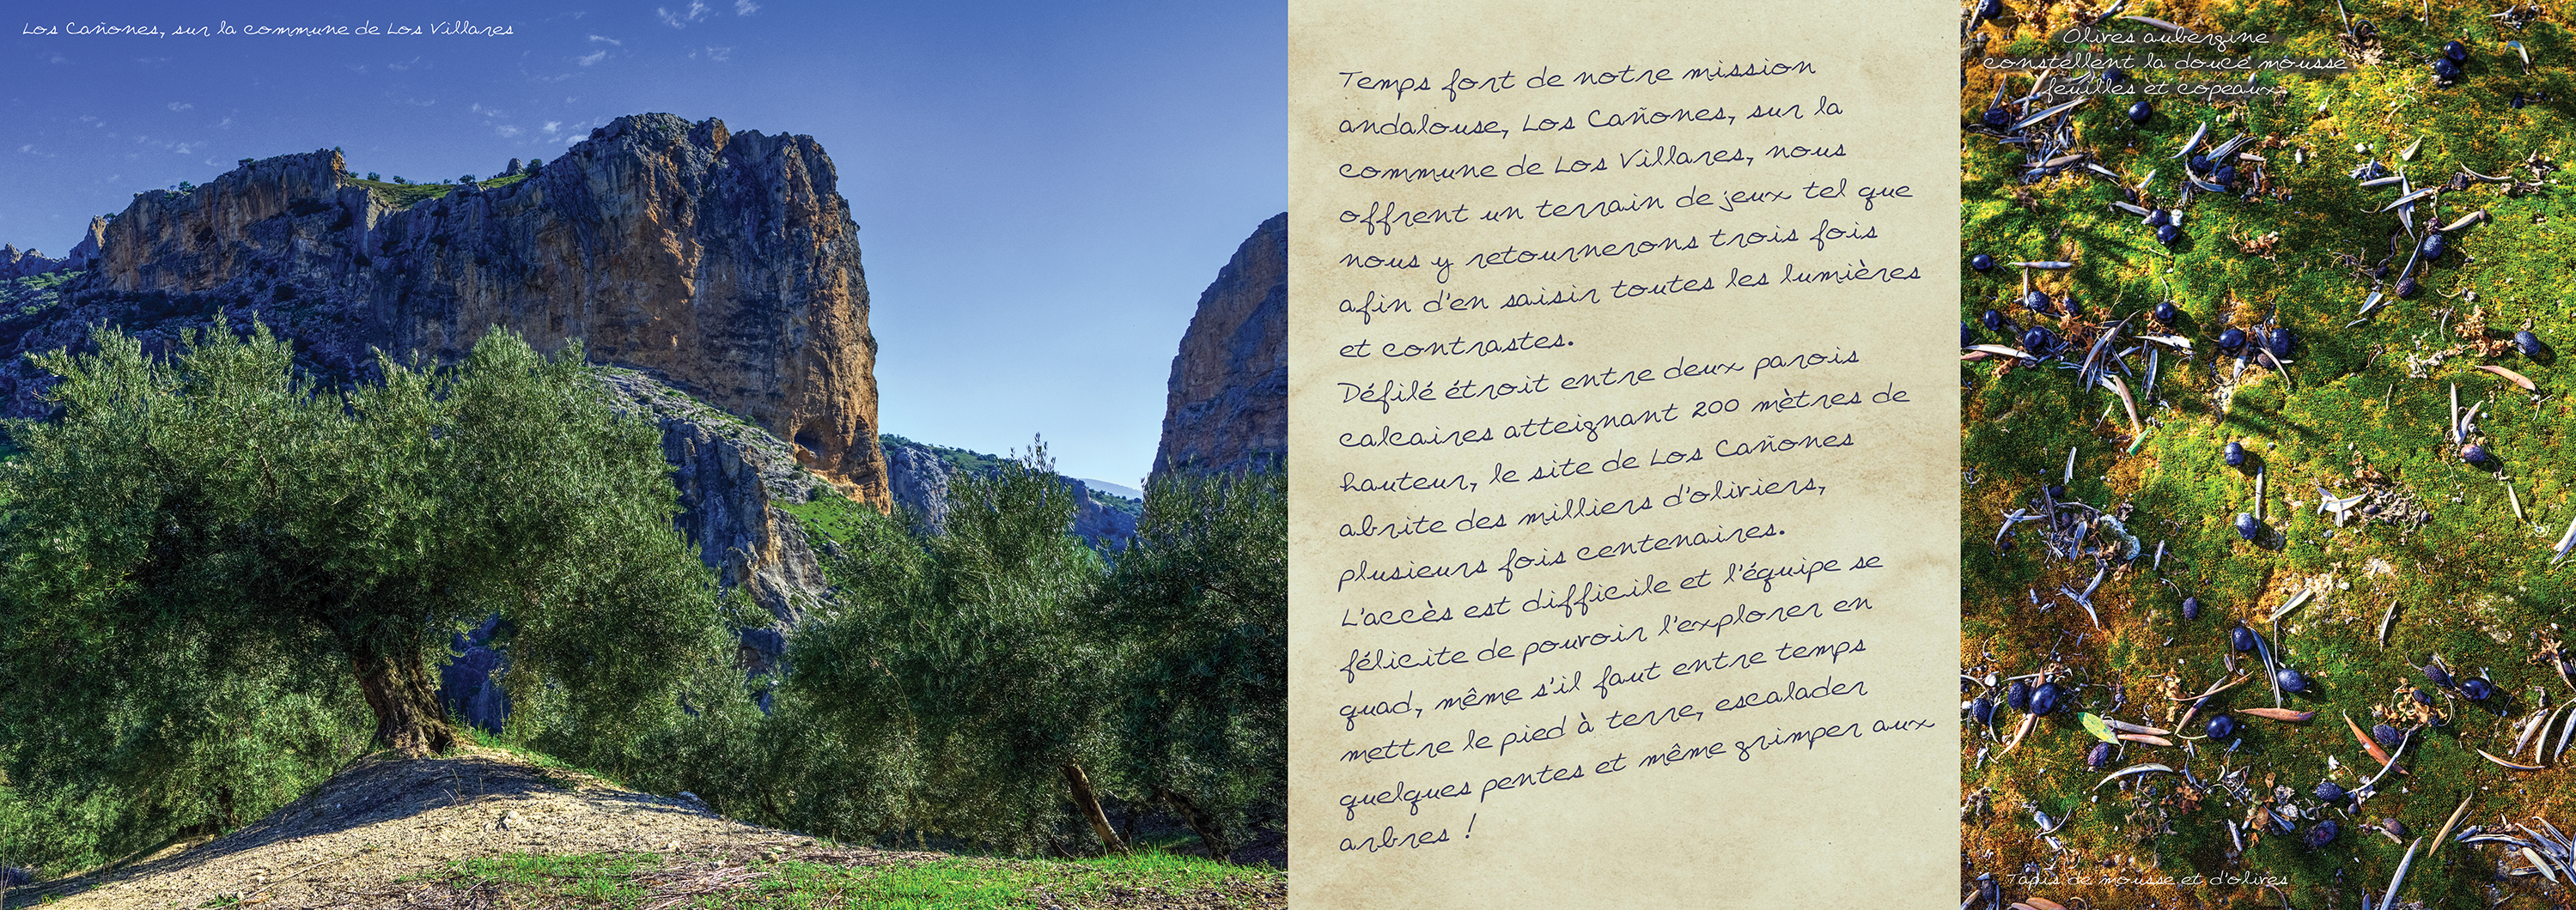 Los Cañones, sur la commune de Los Villares
Temps fort de notre mission
andalouse, Los Cañones, sur la
commune de Los Villares, nous
offrent un terrain de jeux tel que
nous y retournerons trois fois
afin d'en saisir toutes les lumières
et contrastes.
Défilé étroit entre deux parois
calcaires atteignant 200 mètres de
hauteur, le site de Los Cañones
abrite des milliers d'oliviers,
plusieurs fois centenaires.
L'accès est difficile et l'équipe se
félicite de pouvoir l'explorer en
quad, même s'il faut entre temps
mettre le pied à terre, escalader
quelques pentes et même grimper aux
arbres !
Olives aubergine
constellent la douce mousse
feuilles et copeaux
Tapis de mousse et d'olives